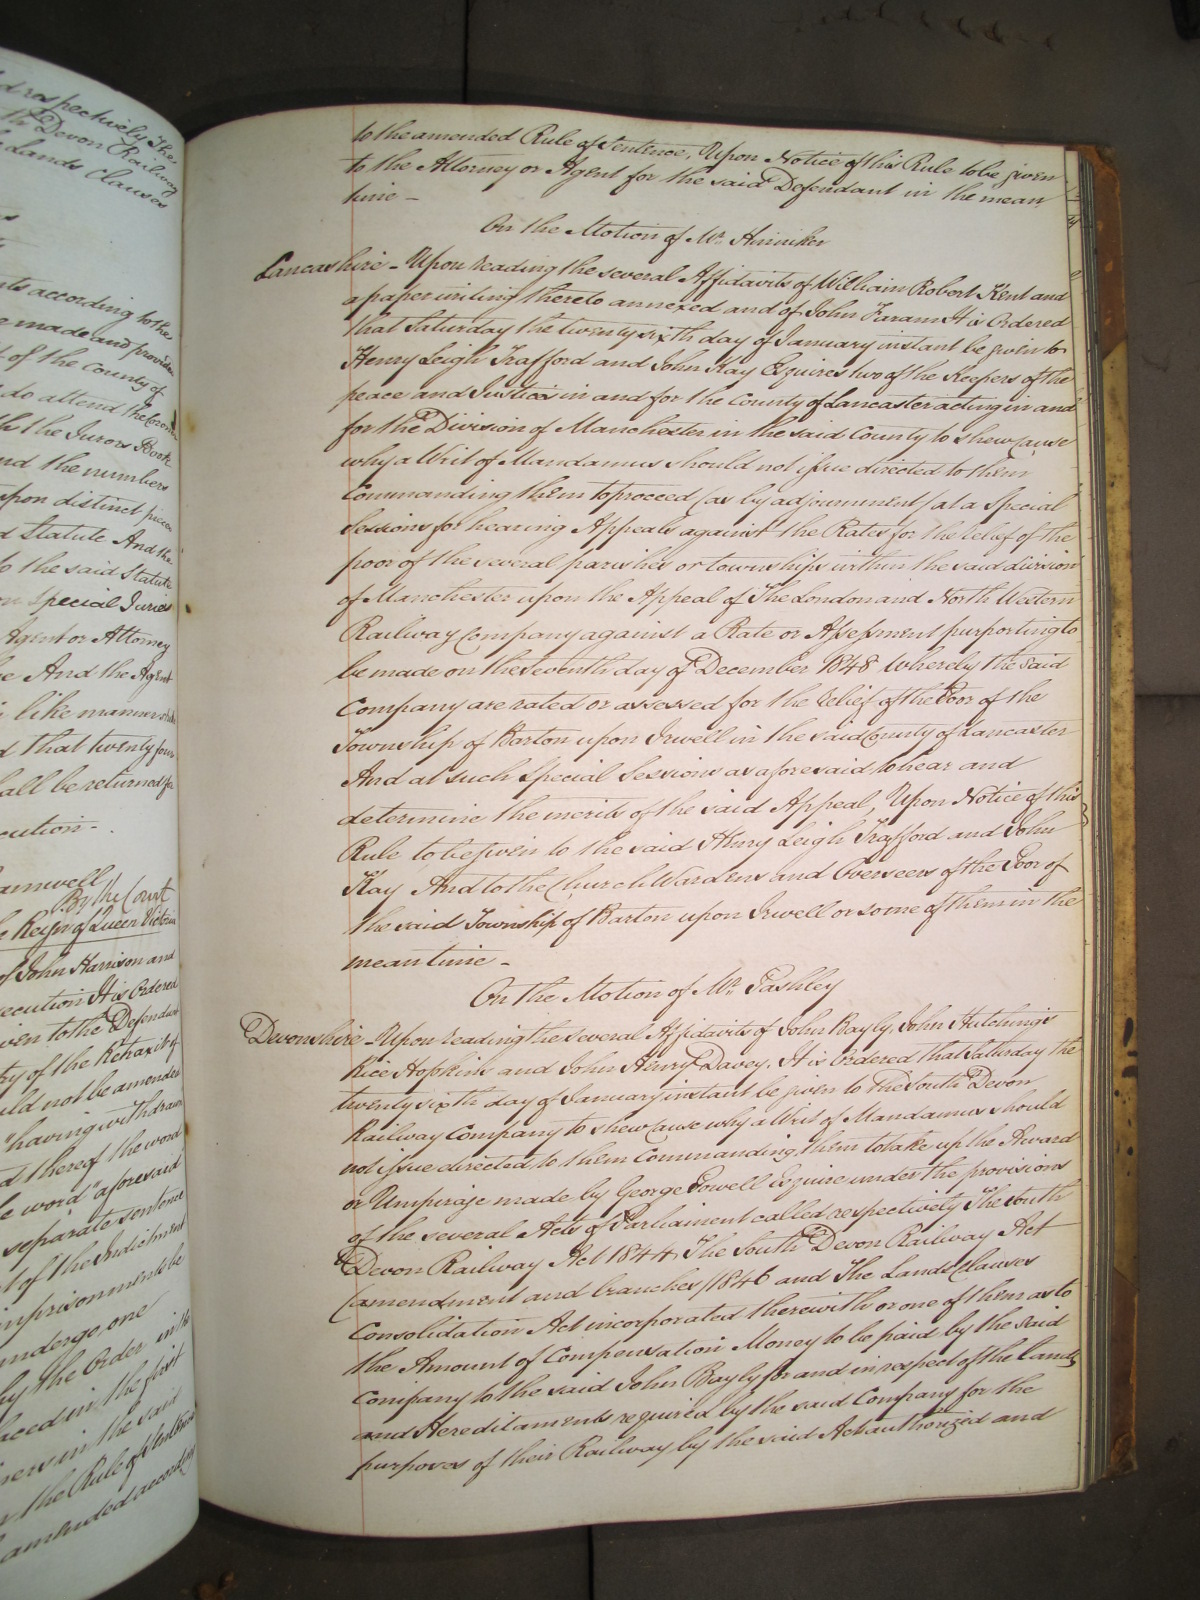 d respectively The
th Devon Railway
e Lands Clauses
nts according to the
e made and provided
t of the County of
do attend the Coroner
th the Jurors Book
nd the numbers
upon distinct pieces
d Statute And the
to the said Statute
on Special Juries
Agent or Attorney
e And the Agent
in like manner
d that twenty four
all be returned for
cution -
amwell
By the Court
e Reign of Queen Victoria
of John Harrison and
ecution It is Ordered
iven to the Defendant
ry of the
uld not be amended
"having withdrawn
d thereof the word
e word "aforesaid
separate sentence
t of the Indictment
imprisonments be
undergo, one
by the Order in the
laced in the first
ners in the said
n the Rule of Sentence
amended accordingly
to the amended Rule of Sentence, Upon Notice of this Rule to be given
to the Attorney or Agent for the said Defendant in the mean
time -
On the Motion of Mr.
Lancashire - Upon reading the several Affidavits of William Robert Kent and
a paper writing thereto annexed and of John Faram It is Ordered
that Saturday the twenty sixth day of January instant be given to
Henry Leigh Trafford and John Kay Esquires two of the Keepers of the
peace and Justices in and for the County of Lancaster acting in and
for the Division of Manchester in the said County to shew Cause
why a Writ of Mandamus should not issue directed to them
Commanding them to proceed (as by adjournment) at a Special
Sessions for hearing Appeals against the Rates for the relief of the
poor of the several parishes or townships within the said division
of Manchester upon the Appeal of The London and North Western
Railway Company against a Rate or Assessment purporting to
be made on the seventh day of December 1848 whereby the said
Company are rated or assessed for the relief of the Poor of the
Township of Barton upon Irwell in the said County of Lancaster
And at such Special Sessions as aforesaid to hear and
determine the merits of the said Appeal, Upon Notice of this
Rule to be given to the said Henry Leigh Trafford and John
Kay And to the Church Wardens and Overseers of the Poor of
the said Township of Barton upon Irwell or some of them in the
mean time -
On the Motion of Mr. Pashley
Devonshire - Upon reading the several Affidavits of John Bayly, John Hutchings
Rice Hopkins and John Henry Davey, It is Ordered that Saturday the
twenty sixth day of January instant be given to The South Devon
Railway Company to shew Cause why a Writ of Mandamus should
not issue directed to them Commanding them to take up the Award
or Umpirage made by George Powell Esquire under the provisions
of the several Acts of Parliament called respectively The South
Devon Railway Act 1844 The South Devon Railway Act
(amendment and branches) 1846 and The Lands Clauses
Consolidation Act incorporated therewith or one of them as to
the Amount of Compensation Money to be paid by the said
Company to the said John Bayly for and in respect of the lands
and Hereditaments required by the said Company for the
purposes of their Railway by the said Act authorized and